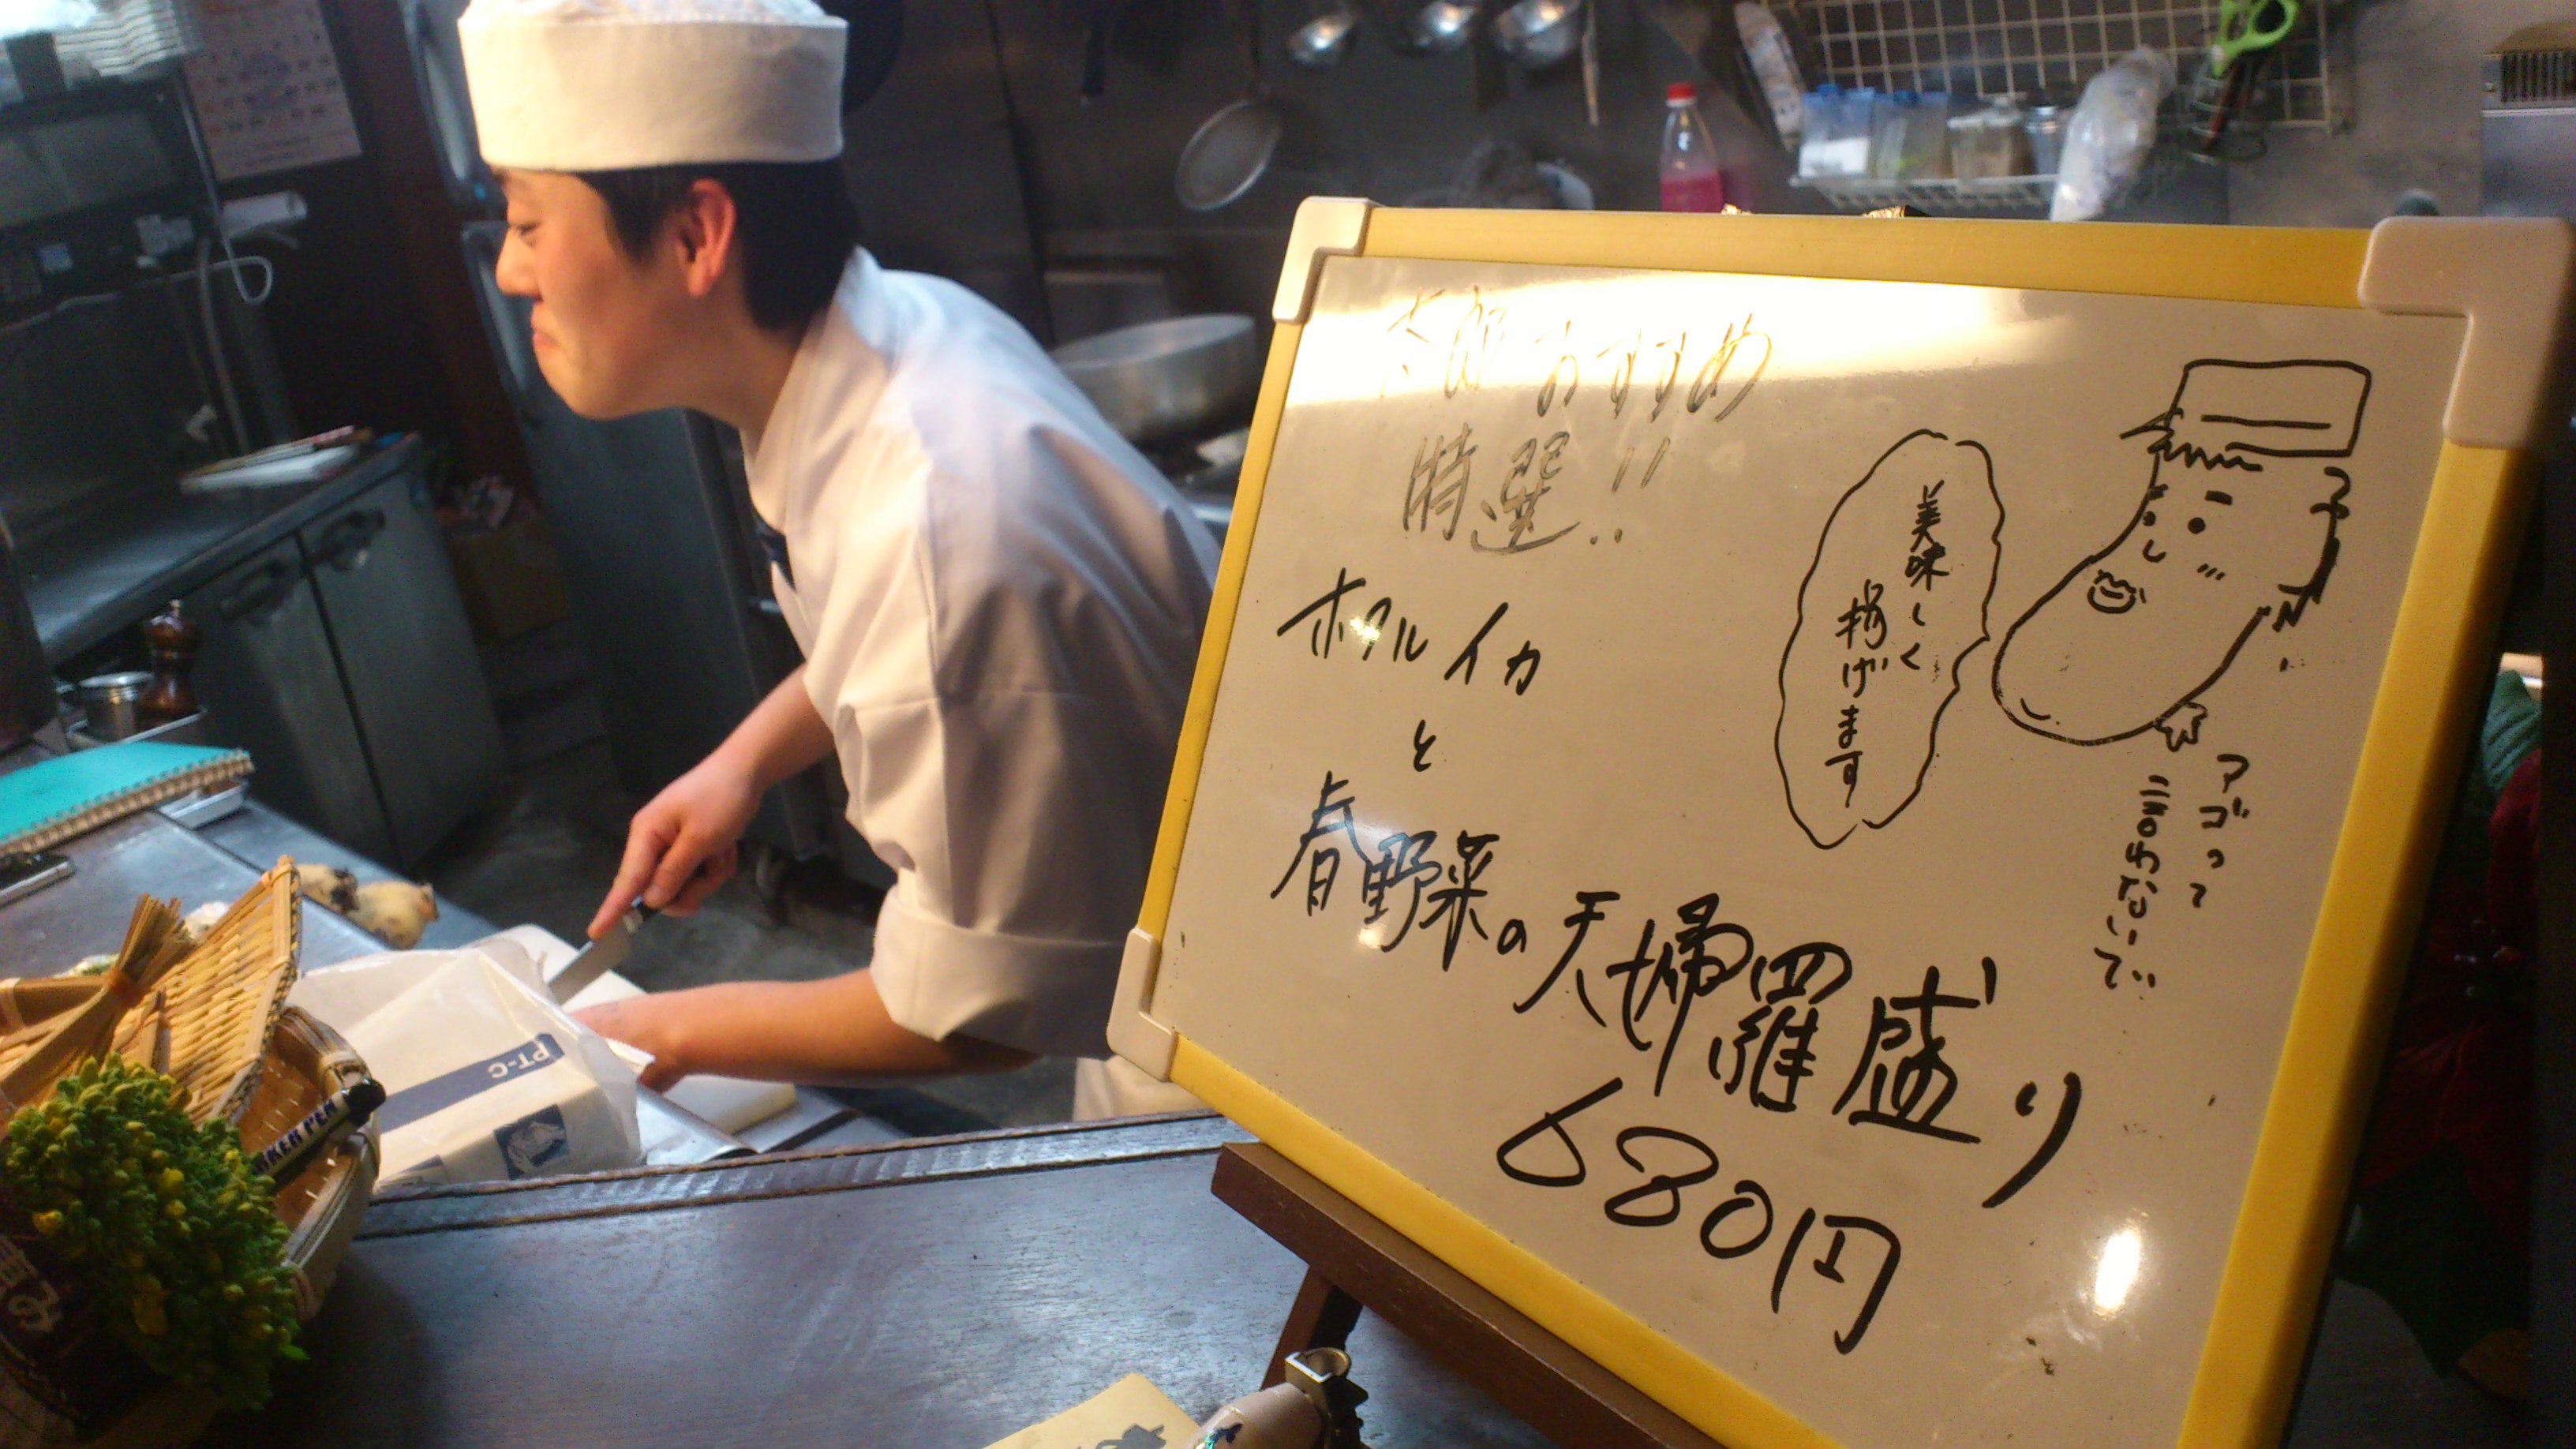 太郎おすすめ
特選!!
ホタルイカ
と
春野菜の天婦羅盛り
680円
美味しく
揚げます
アゴって
言わないで
PT-C
MARKER PEN